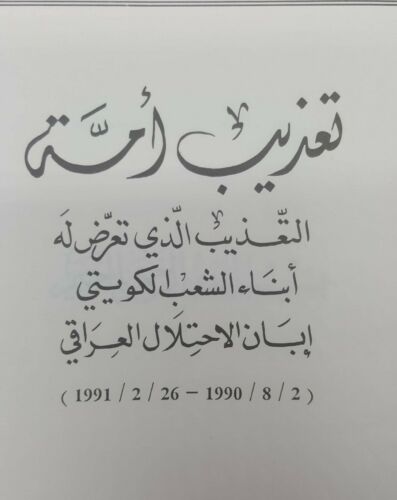 تعذيب أمة
التعذيب الذي تعرض له
أبناء الشعب الكويتي
إبان الاحتلال العراقي
(1991 / 2 / 26 – 1990 / 8 / 2)